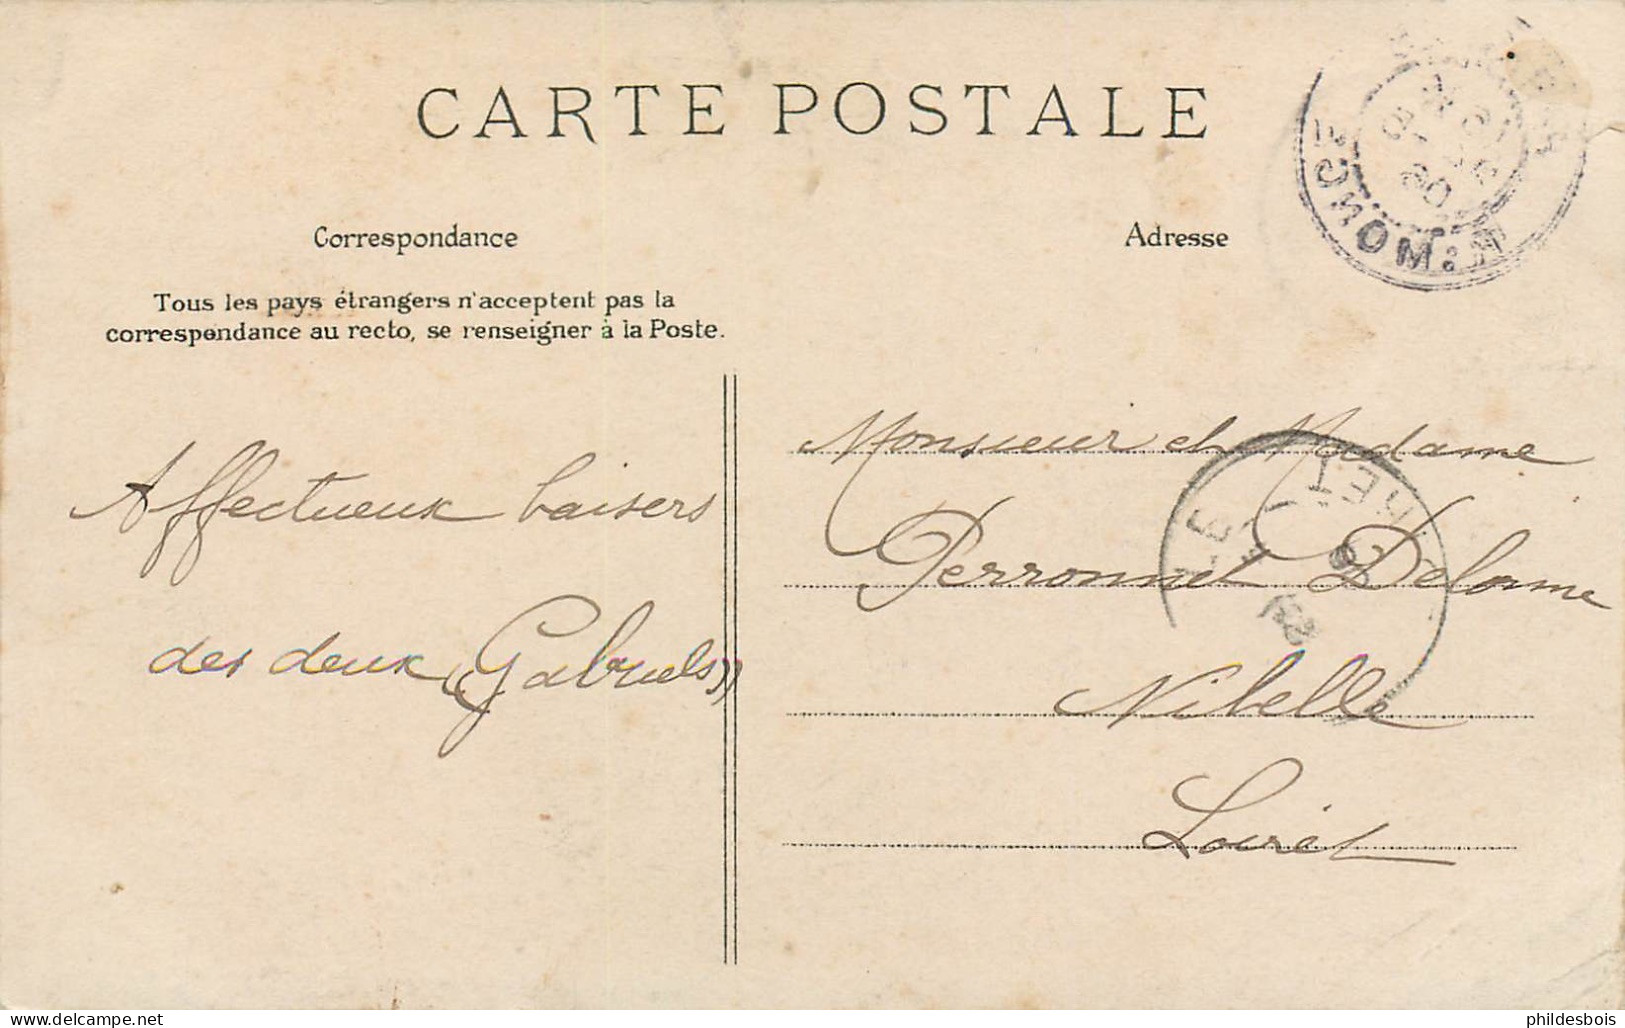 CARTE POSTALE
Correspondance
Adresse
Tous les pays étrangers n'acceptent pas la
correspondance au recto, se renseigner à la Poste.
Affectueux baisers
des deux "Gabriels"
Monsieur et Madame
Perronnet Delorme
Nibelle
Loiret
delcampe.net
phildesbois